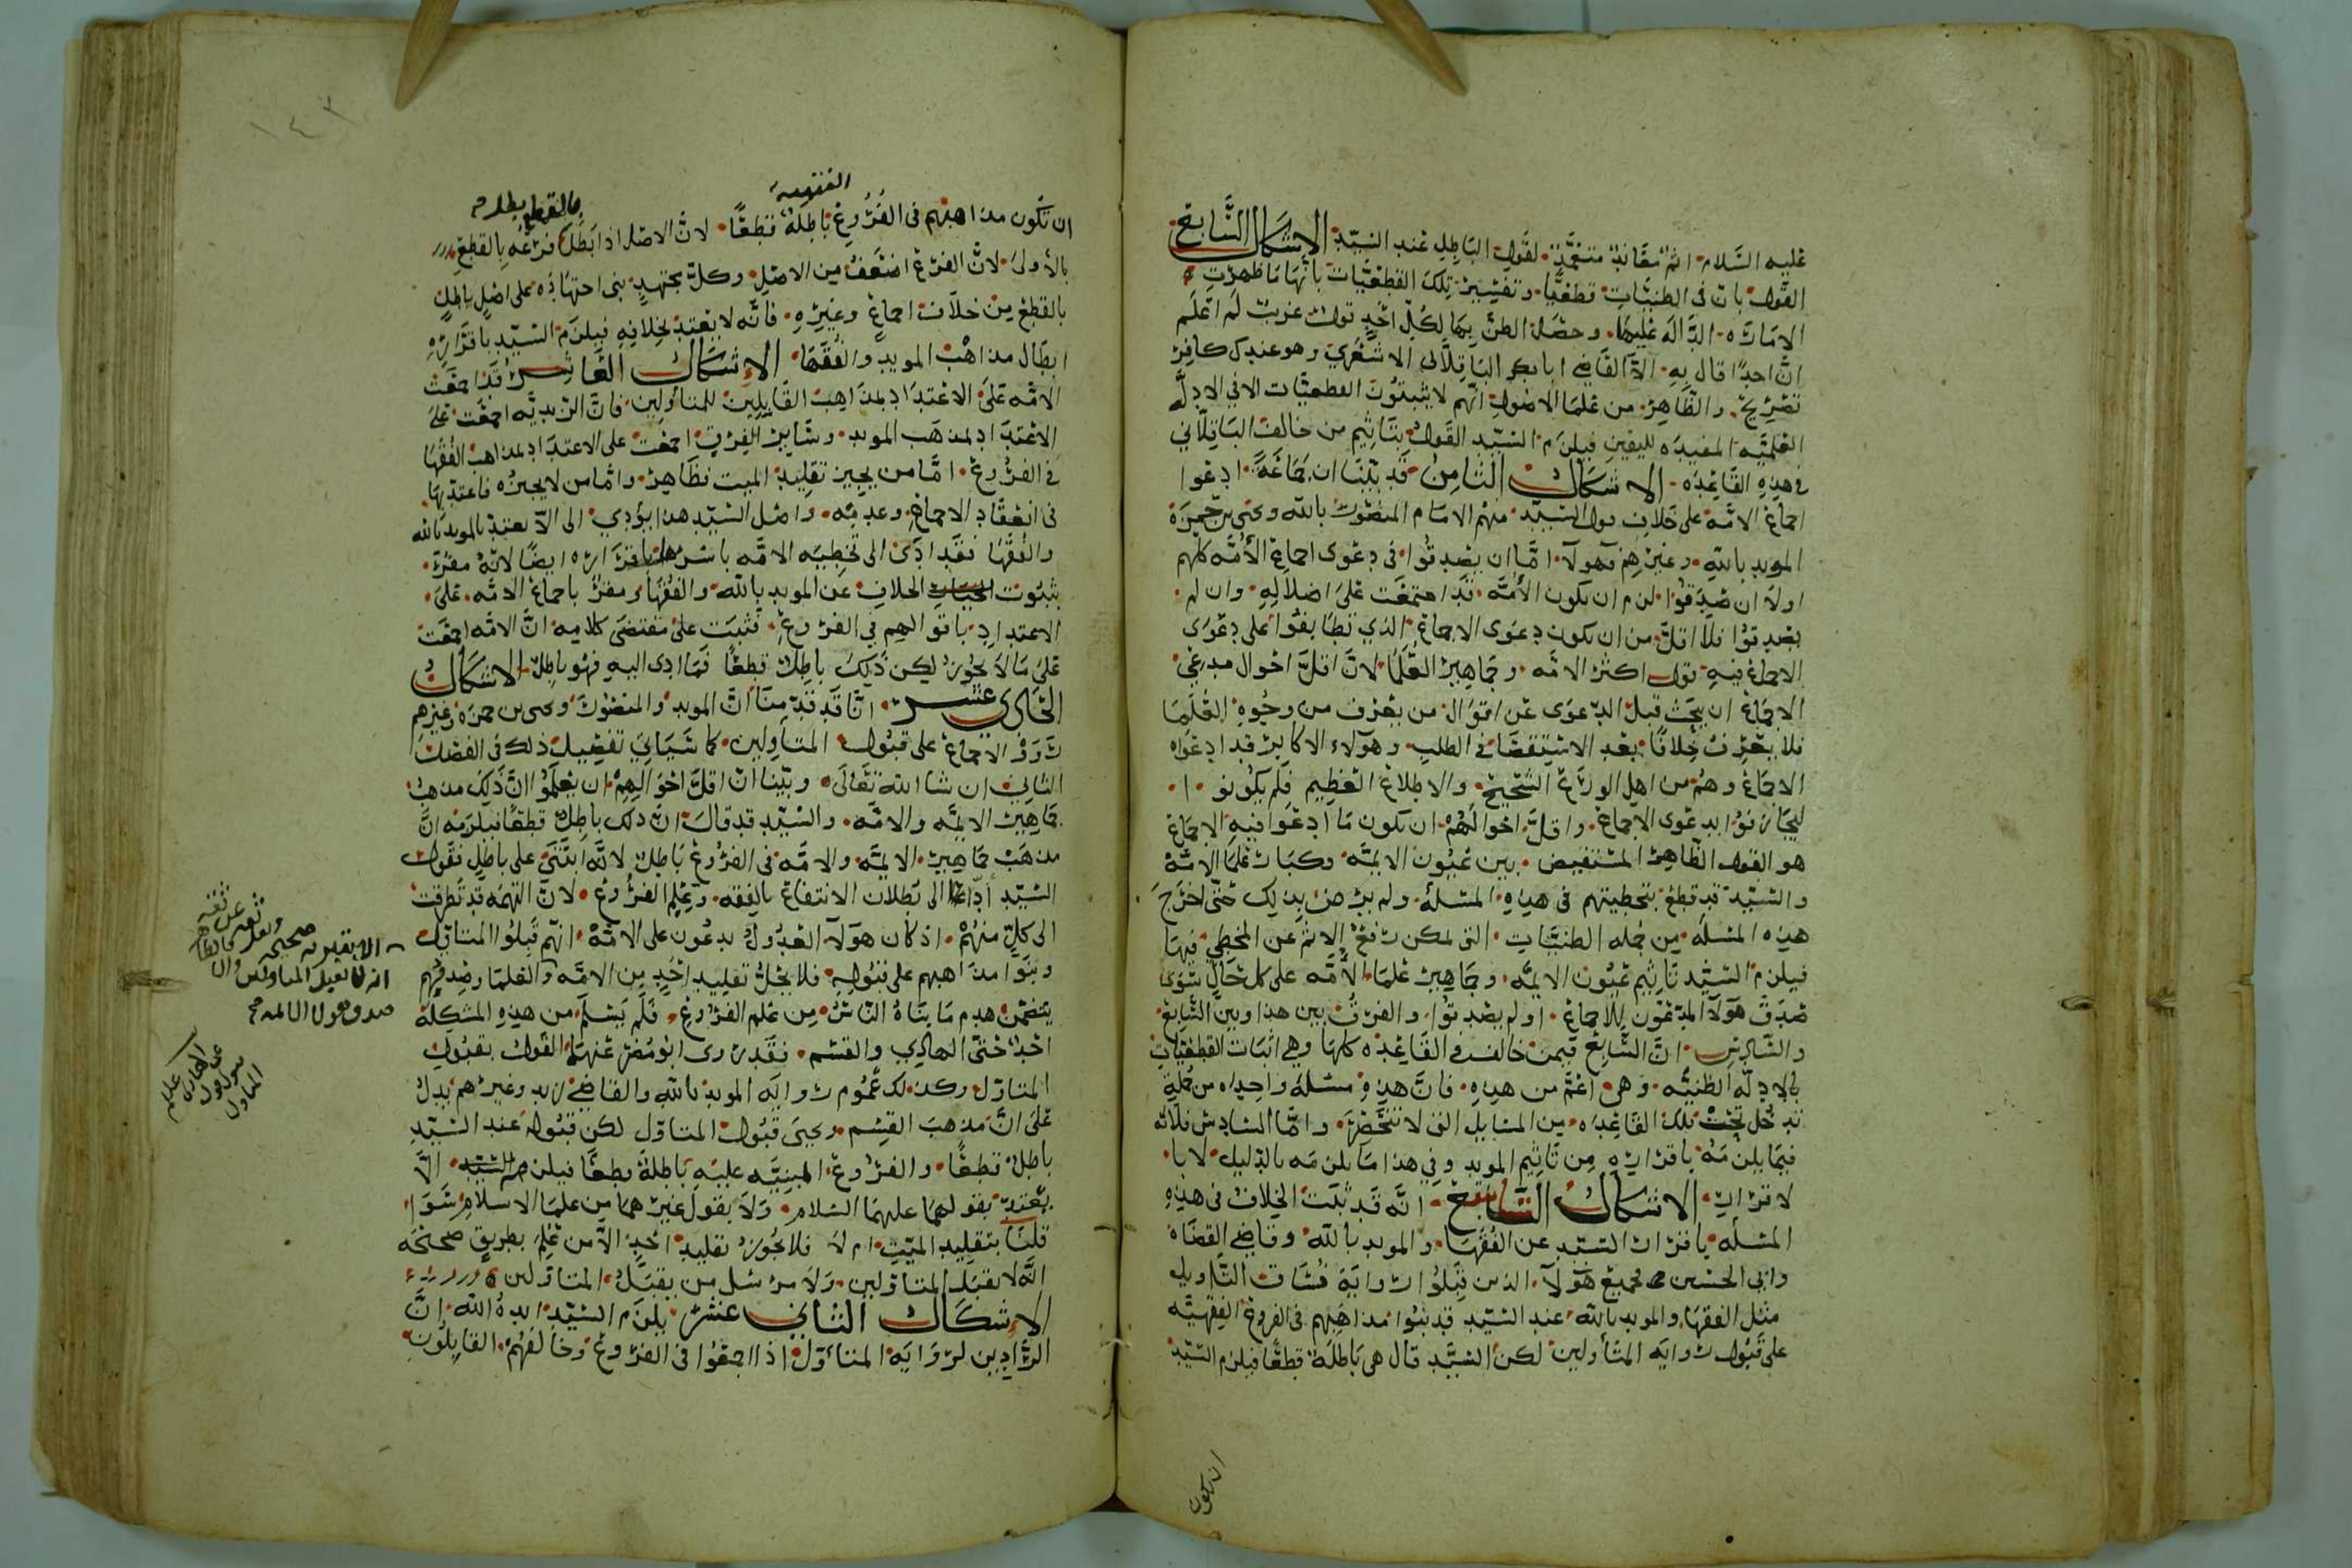 عليه السلام اثم معاند متعمد لقول الباطل عند السيد الاشكال السابع
القول بان في الظنيات قطعيا وتفسير تلك القطعيات بانها ما ظهرت
الاماره الداله عليها وحصل الظن بها لكل احد قول غريب لم اعلم
ان احدا قال به الا القاضي ابا بكر الباقلاني الاشعري وهو عندك كافر
تصريح والظاهر من علما الاصول انهم لا يثبتون القطعيات الا في الادله
العلميه المفيده لليقين فيلزم السيد القول بتاثيم من خالف الباقلاني
في هذه القاعده الاشكال الثامن قد بينا ان جماعة ادعوا
اجماع الامه على خلاف قول السيد منهم الامام المنصور بالله ويحيى بن حمزه
المويد بالله وغيرهم فهولا اما ان يصدقوا في دعوى اجماع الأمه كلهم
اولا ان صدقوا لزم ان يكون الأمه قد اجتمعت على اضلاله وان لم
يصدقوا فلا اقل من ان يكون دعوى الاجماع الذي تطابقوا على دعوى
الاجماع فيه قول اكثر الامه وجماهير العلما لان اقل احوال مدعي
الاجماع ان يبحث قبل الدعوى عن اقوال من يعرف من وجوه العلما
فلا يعرف خلافا بعد الاستقصا في الطلب وهولاء الاكابر قد ادعوا
الاجماع وهم من اهل الورع الشحيح والاطلاع العظيم فلم يكونوا
ليجازفوا بدعوى الاجماع واقل احوالهم ان يكون ما ادعوا فيه الاجماع
هو القول الظاهر المستفيض بين عيون الايمه وكبار علما الامه
والسيد قد قطع بتخطيتهم في هذه المسله ولم يرض بذلك حتى اخرج
هذه المسله من جمله الظنيات التي يمكن رفع الاثم عن المخطي فيها
فيلزم السيد تاثيم عيون الايمه وجماهير علما الأمه على كل حال سوى
صدق هولا المدعون للاجماع او لم يصدقوا والفرق بين هذا وبين السابع
والسادس ان السابع فيمن خالف في القاعده كلها وهي اثبات القطعيات
بالادله الظنيه وهي اعم من هذه فان هذه مسله واحده من جملة
تدخل تحت تلك القاعده من المسايل التي لا تنحصر واما السادس فلانه
فيما يلزمه باقراره من تاثيم المويد وفي هذا ما يلزمه بالدليل لا با
لاقرار الاشكال التاسع انه قد ثبت الخلاف في هذه
المسله باقرار السيد عن الفقها والمويد بالله وقاضي القضاه
وابي الحسين فجميع هولا الذين قبلوا رواية فساق التاويل
مثل الفقها والمويد بالله عند السيد قد بنوا مذاهبهم في الفروع الفقهيه
على قبول روايه المتأولين لكن السيد قال هي باطلة قطعا فيلزم السيد
ان يكون
ان تكون مذاهبهم في الفروع باطلة قطعا لان الاصل اذا بطل فرعه بالقطع
الفقهيه
بالقطع بطل
بالأولى لان الفرع اضعف من الاصل وكل مجتهد بنى اجتهاده على اصل باطل
بالقطع من خلاف اجماع وغيره فانه لا يعتد بخلافه فيلزم السيد باقراره
ابطال مذاهب المويد والفقها الاشكال العاشر قد اجمعت
الامه على الاعتداد بمذاهب القابلين للمتاولين فان الزيديه اجمعت على
الاعتداد بمذهب المويد وساير الفرق اجمعت على الاعتداد بمذاهب الفقها
في الفروع اما من يجيز تقليد الميت فظاهر واما من لا يجيزه فاعتد بها
في انعقاد الاجماع وعدمه واصل السيد هذا يؤدي الى الا يعتد بالمويد بالله
والفقها فقد ادى الى تخطيه الامه باسرها باقراره ايضا لانه مقر
بثبوت الخلاف عن المويد بالله والفقها ومقر باجماع الامه على
الاعتداد باقوالهم في الفروع فثبت على مقتضى كلامه ان الامه اجمعت
على ما لا يجوز لكن ذلك باطل قطعا فما ادى اليه فهو باطل الاشكال
الحادي عشر انا قد قدمنا ان المويد والمنصور ويحيى بن حمزه وغيرهم
رووا الاجماع على قبول المتاولين كما سياتي تفصيل ذلك في الفصل
الثاني ان شا الله تعالى وبينا ان اقل احوالهم ان يعلموا ان ذلك مذهب
جماهير الايمه والامه والسيد قد قال ان ذلك باطل قطعا فيلزمه ان
مذهب جماهير الايمه والامه في الفروع باطل لانه ابتنى على باطل فقول
السيد اداه الى بطلان الانتفاع بالفقه وعلم الفروع لان التهمه قد تطرقت
الى كل منهم اذ كان هولا العدول يدعون على الامه انهم قبلوا المتاول
وبنوا مذاهبهم على قبوله فلا يحل تقليد احد من الامه والعلما وصدقهم
يتضمن هدم ما بناه الناس من علم الفروع فلم يسلم من هذه المشكلة
احد حتى الهادي والقسم فقد روى ابو مضر عنهما القول بقبول
المتاول وكذلك عموم روايه المويد بالله والقاضي زيد وغيرهم يدل
على ان مذهب القسم ويحيى قبول المتاول لكن قبوله عند السيد
باطل قطعا والفروع المبنيه عليه باطلة قطعا فيلزم السيد الا
يعتد بقولهما عليهما السلام ولا بقول غيرهما من علما الاسلام سوا
قلنا بتقليد الميت ام لا فلا يجوز تقليد احد الا من علم بطريق صحيحه
انه لا يقبل المتاولين ولا مرسل من يقبل المتاولين
الاشكال الثاني عشر يلزم السيد ايده الله ان
الرادين لروايه المتاول اذا اجمعوا في الفروع وخالفهم القابلون